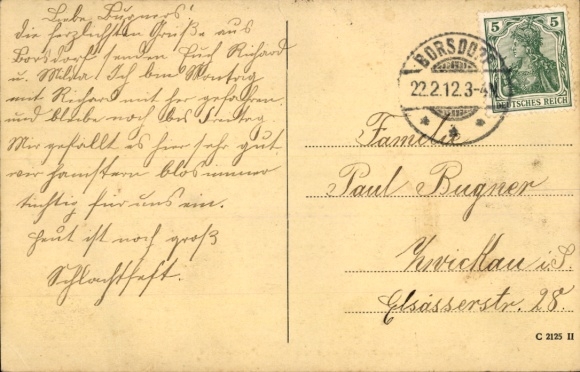 Liebe Bugners!
die herzlichsten Grüße aus
Borsdorf senden Euch Richard
u. Milda! Ich bin Montag
mit Richard mit her gefahren
und bleibe noch bis Freitag
Mir gefällt es hier sehr gut
wir hamstern blos immer
tüchtig für uns ein.
Heut ist noch groß
Schlachtfest.
5 5
DEUTSCHES REICH
BORSDORF
22.2.12.3-4N
Familie
Paul Bugner
Zwickau i. S.
Elsässerstr. 28.
C 2125 II